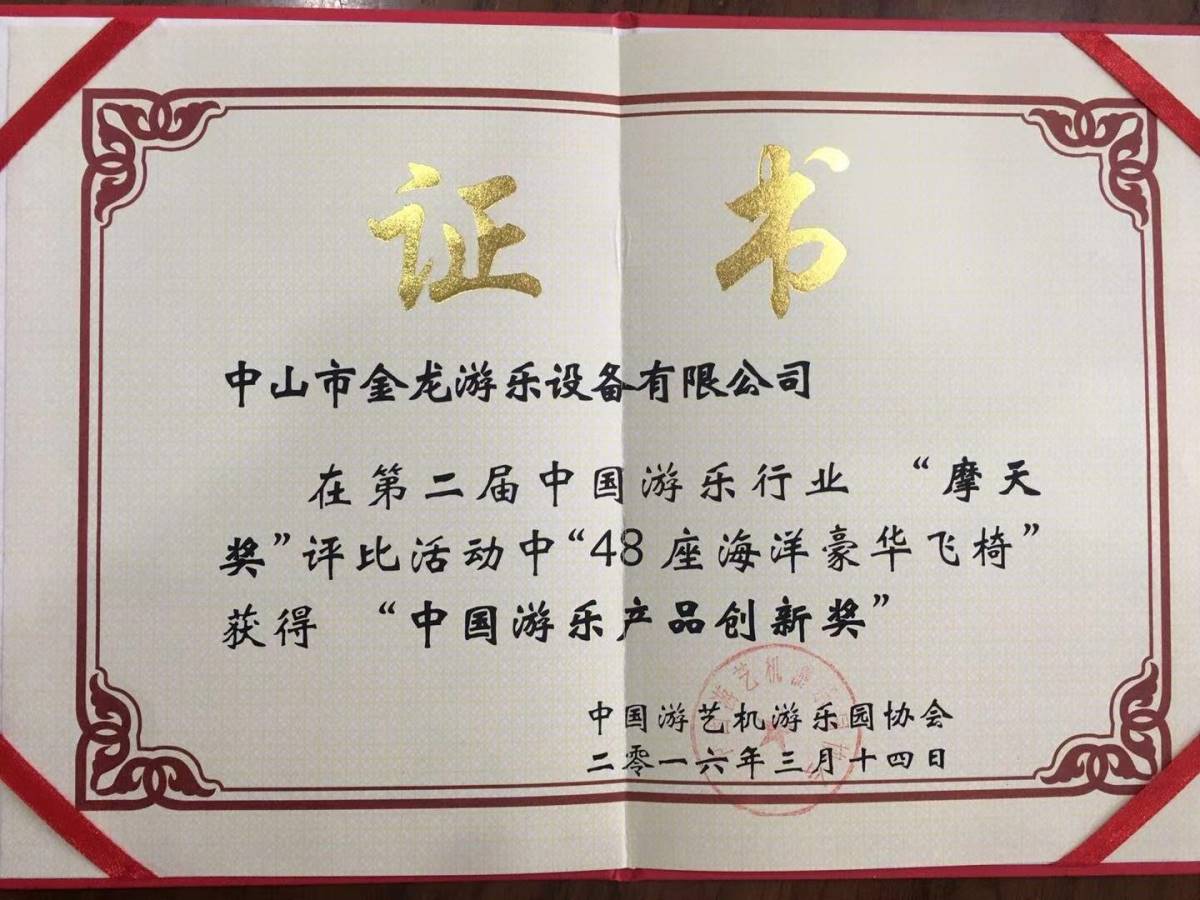 证书
中山市金龙游乐设备有限公司
在第二届中国游乐行业 “摩天
奖”评比活动中“48座海洋豪华飞椅”
获得 “中国游乐产品创新奖”
中国游艺机游乐园协会
二零一六年三月十四日